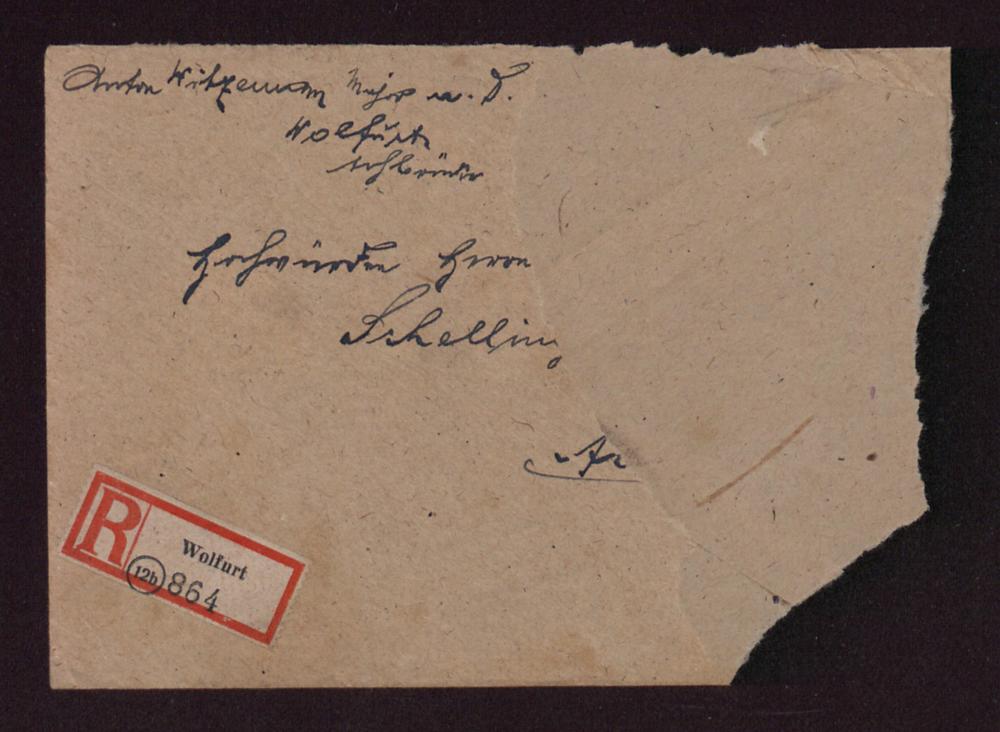 Anton Witzemann Major a. D.
Wolfurt
Hochwürden Herrn
Schelling
R
Wolfurt
12b
864